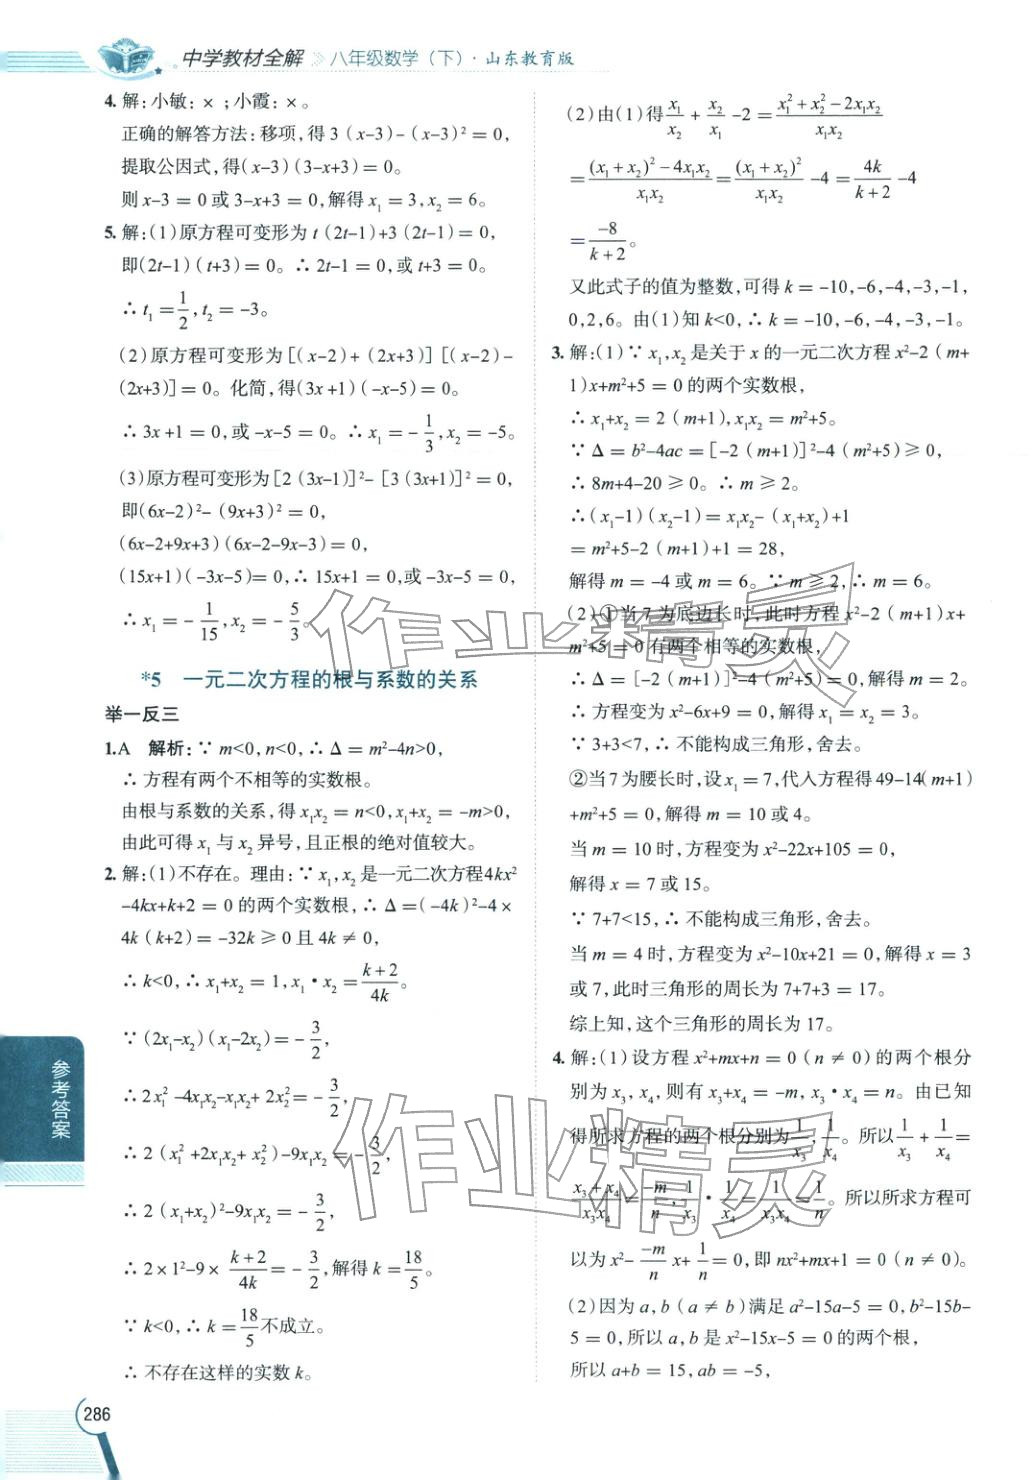 中学教材全解 八年级数学（下）·山东教育版
4. 解：小敏：×；小霞：×。
正确的解答方法：移项，得 3（x-3）-（x-3）²=0，
提取公因式，得（x-3）（3-x+3）=0。
则 x-3=0 或 3-x+3=0，解得 x₁=3，x₂=6。
5. 解：（1）原方程可变形为 t（2t-1）+3（2t-1）=0，
即（2t-1）（t+3）=0。∴ 2t-1=0，或 t+3=0。
∴ t₁=1/2，t₂=-3。
（2）原方程可变形为［（x-2）+（2x+3）］［（x-2）-
（2x+3）］=0。化简，得（3x+1）（-x-5）=0。
∴ 3x+1=0，或 -x-5=0。∴ x₁=-1/3，x₂=-5。
（3）原方程可变形为［2（3x-1）］²-［3（3x+1）］²=0，
即（6x-2）²-（9x+3）²=0，
（6x-2+9x+3）（6x-2-9x-3）=0，
（15x+1）（-3x-5）=0，∴ 15x+1=0，或 -3x-5=0，
∴ x₁=-1/15，x₂=-5/3。
*5 一元二次方程的根与系数的关系
举一反三
1.A 解析：∵ m<0，n<0，∴ Δ=m²-4n>0，
∴ 方程有两个不相等的实数根。
由根与系数的关系，得 x₁x₂=n<0，x₁+x₂=-m>0，
由此可得 x₁ 与 x₂ 异号，且正根的绝对值较大。
2. 解：（1）不存在。理由：∵ x₁，x₂ 是一元二次方程4kx²
-4kx+k+2=0 的两个实数根，∴ Δ=（-4k）²-4×
4k（k+2）=-32k≥0 且 4k≠0，
∴ k<0，∴ x₁+x₂=1，x₁·x₂=(k+2)/4k。
∵（2x₁-x₂）（x₁-2x₂）=-3/2，
∴ 2x₁²-4x₁x₂-x₁x₂+2x₂²=-3/2，
∴ 2（x₁²+2x₁x₂+x₂²）-9x₁x₂=-3/2，
∴ 2（x₁+x₂）²-9x₁x₂=-3/2，
∴ 2×1²-9×(k+2)/4k=-3/2，解得 k=18/5。
∵ k<0，∴ k=18/5不成立。
∴ 不存在这样的实数 k。
（2）由（1）得x₁/x₂+x₂/x₁-2=(x₁²+x₂²-2x₁x₂)/x₁x₂
=((x₁+x₂)²-4x₁x₂)/x₁x₂=(x₁+x₂)²/x₁x₂-4=4k/(k+2)-4
=-8/(k+2)。
又此式子的值为整数，可得 k=-10，-6，-4，-3，-1，
0，2，6。由（1）知 k<0，∴ k=-10，-6，-4，-3，-1。
3. 解：（1）∵ x₁，x₂ 是关于 x 的一元二次方程 x²-2（m+
1）x+m²+5=0 的两个实数根，
∴ x₁+x₂=2（m+1），x₁x₂=m²+5。
∵ Δ=b²-4ac=［-2（m+1）］²-4（m²+5）≥0，
∴ 8m+4-20≥0。∴ m≥2。
∴（x₁-1）（x₂-1）=x₁x₂-（x₁+x₂）+1
=m²+5-2（m+1）+1=28，
解得 m=-4 或 m=6。∵ m≥2，∴ m=6。
（2）①当 7 为底边长时，此时方程 x²-2（m+1）x+
m²+5=0 有两个相等的实数根，
∴ Δ=［-2（m+1）］²-4（m²+5）=0，解得 m=2。
∴ 方程变为 x²-6x+9=0，解得 x₁=x₂=3。
∵ 3+3<7，∴ 不能构成三角形，舍去。
②当 7 为腰长时，设 x₁=7，代入方程得 49-14（m+1）
+m²+5=0，解得 m=10 或 4。
当 m=10 时，方程变为 x²-22x+105=0，
解得 x=7 或 15。
∵ 7+7<15，∴ 不能构成三角形，舍去。
当 m=4 时，方程变为 x²-10x+21=0，解得 x=3
或 7，此时三角形的周长为 7+7+3=17。
综上知，这个三角形的周长为 17。
4. 解：（1）设方程 x²+mx+n=0（n≠0）的两个根分
别为 x₃，x₄，则有 x₃+x₄=-m，x₃·x₄=n。由已知
得所求方程的两个根分别为1/x₃，1/x₄。所以1/x₃+1/x₄=
(x₃+x₄)/x₃x₄=-m/n，1/x₃·1/x₄=1/x₃x₄=1/n。所以所求方程可
以为 x²-(-m/n)x+1/n=0，即 nx²+mx+1=0（n≠0）。
（2）因为 a，b（a≠b）满足 a²-15a-5=0，b²-15b-
5=0，所以 a，b 是 x²-15x-5=0 的两个根，
所以 a+b=15，ab=-5，
参考答案
286
作业精灵
作业精灵